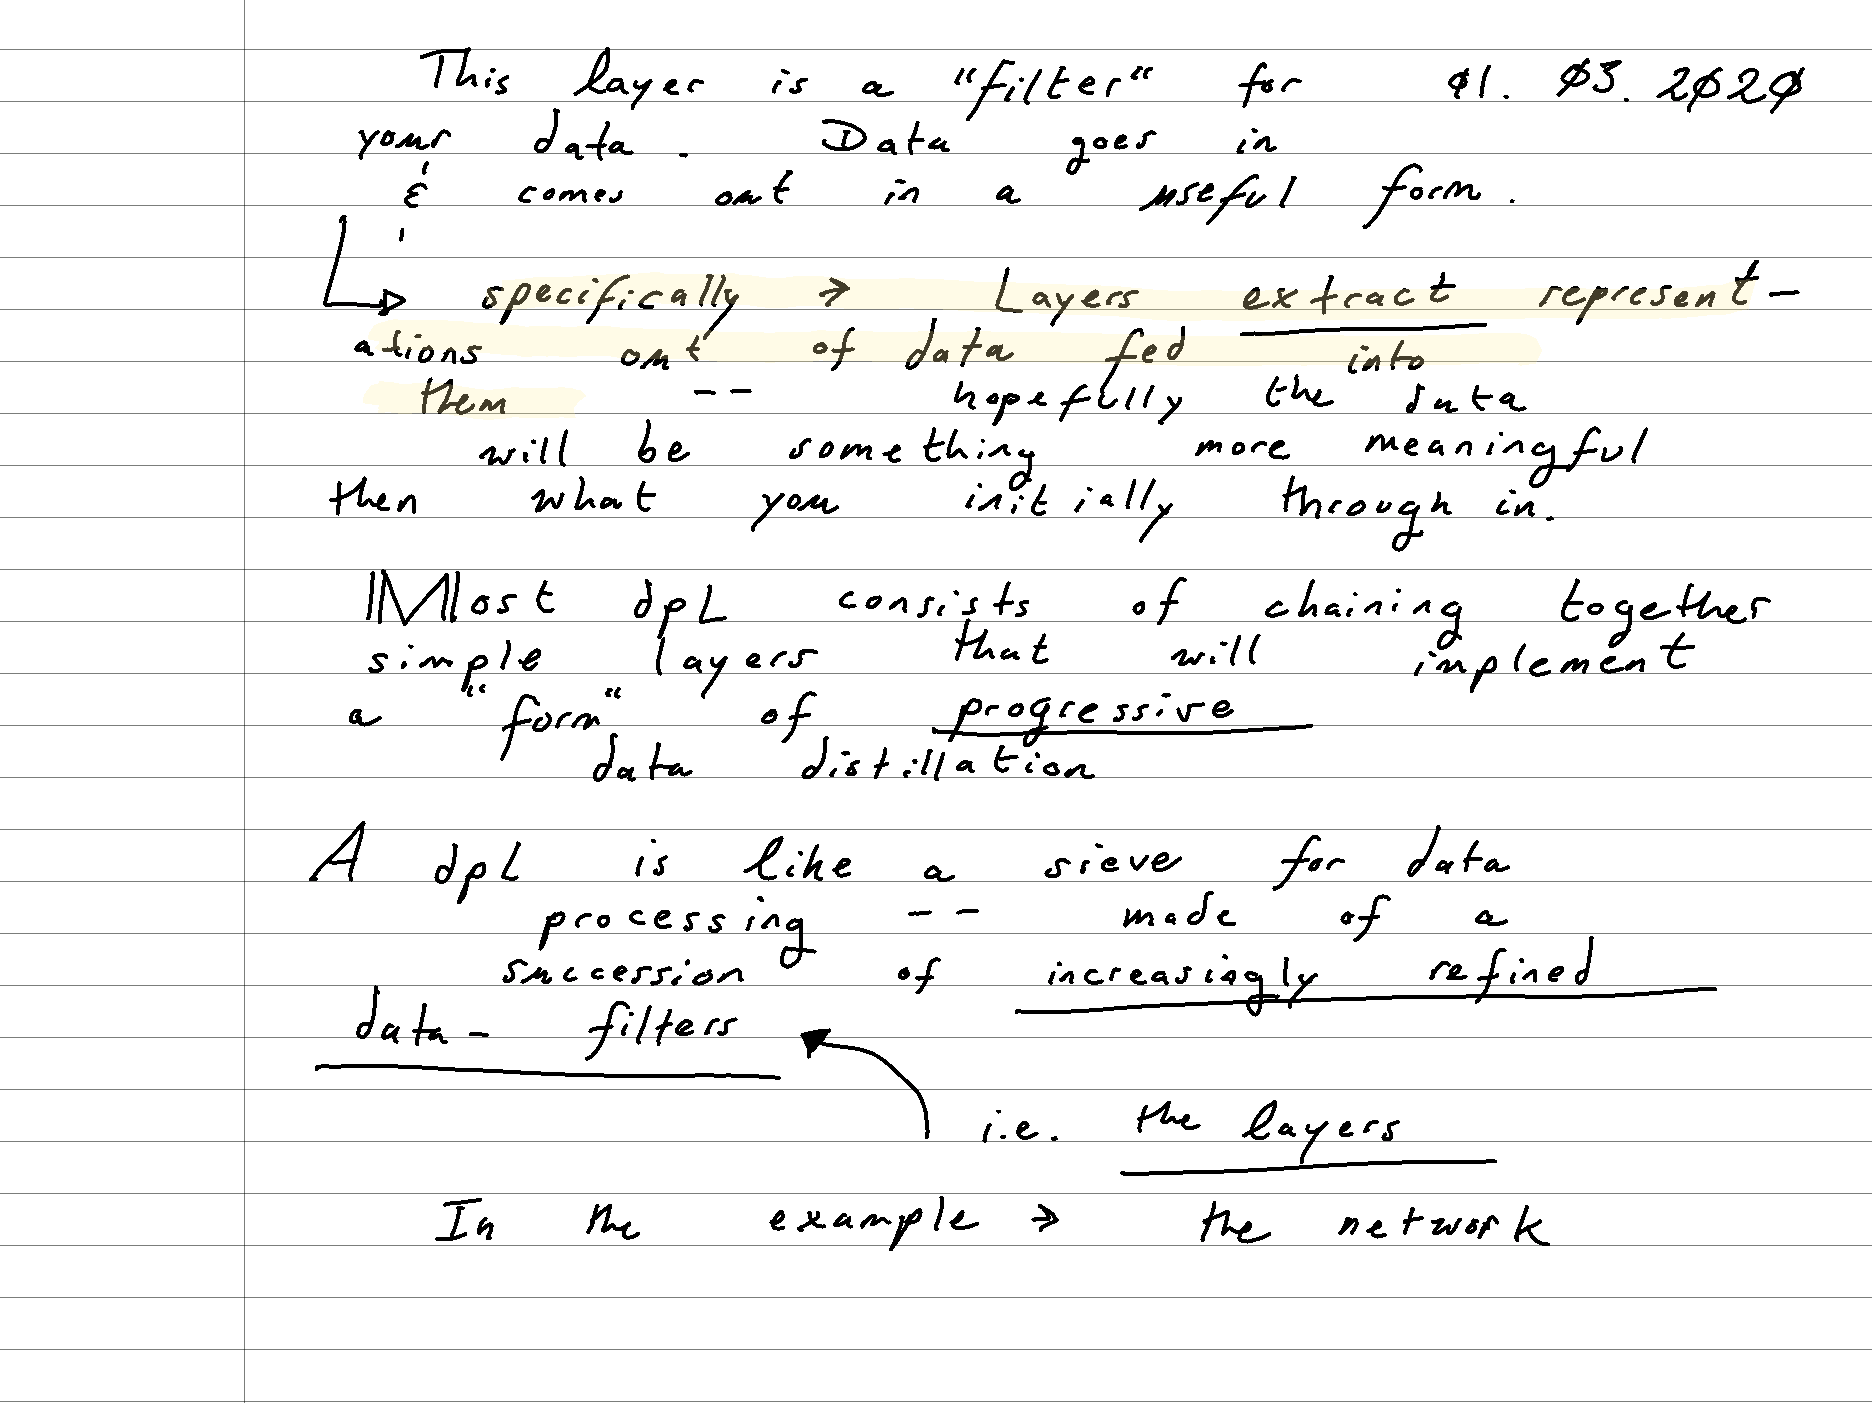 This layer is a "filter" for 01. 03. 2020
your data. Data goes in
& comes out in a useful form.
specifically → Layers extract represent-
ations out of data fed into
them -- hopefully the data
will be something more meaningful
then what you initially through in.
Most dpL consists of chaining together
simple layers that will implement
a "form" of progressive
data distillation
A dpL is like a sieve for data
processing -- made of a
succession of increasingly refined
data- filters
i.e. the layers
In the example → the network